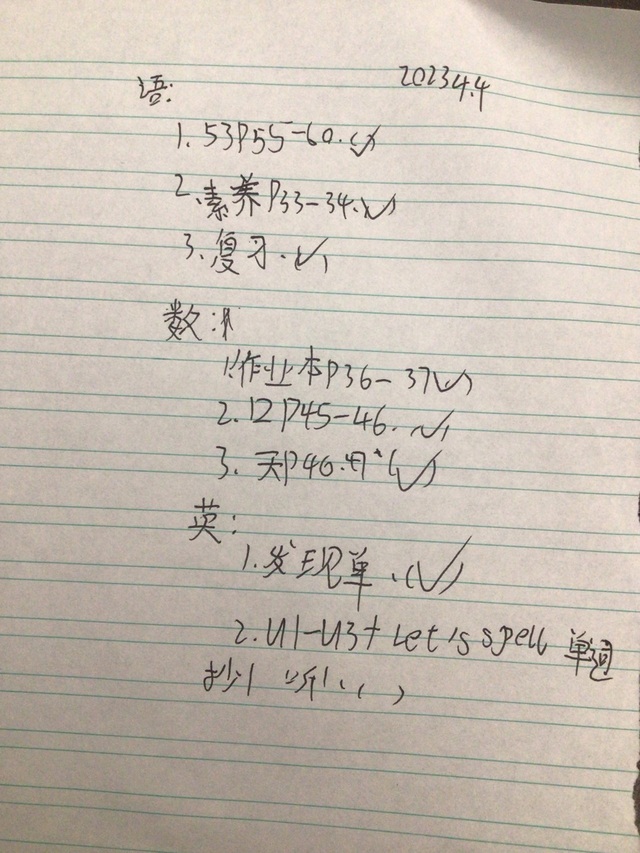 2023 4.4
语:
1. 53P55-60. (✓)
2. 素养P33-34. (✓)
3. 复习. (✓)
数:
1. 作业本P36-37(✓)
2. 口P45-46. (✓)
3. 天P46. (✓)
英:
1. 发现单. (✓)
2. U1-U3+ Let's spell 单词
抄 听. ( )